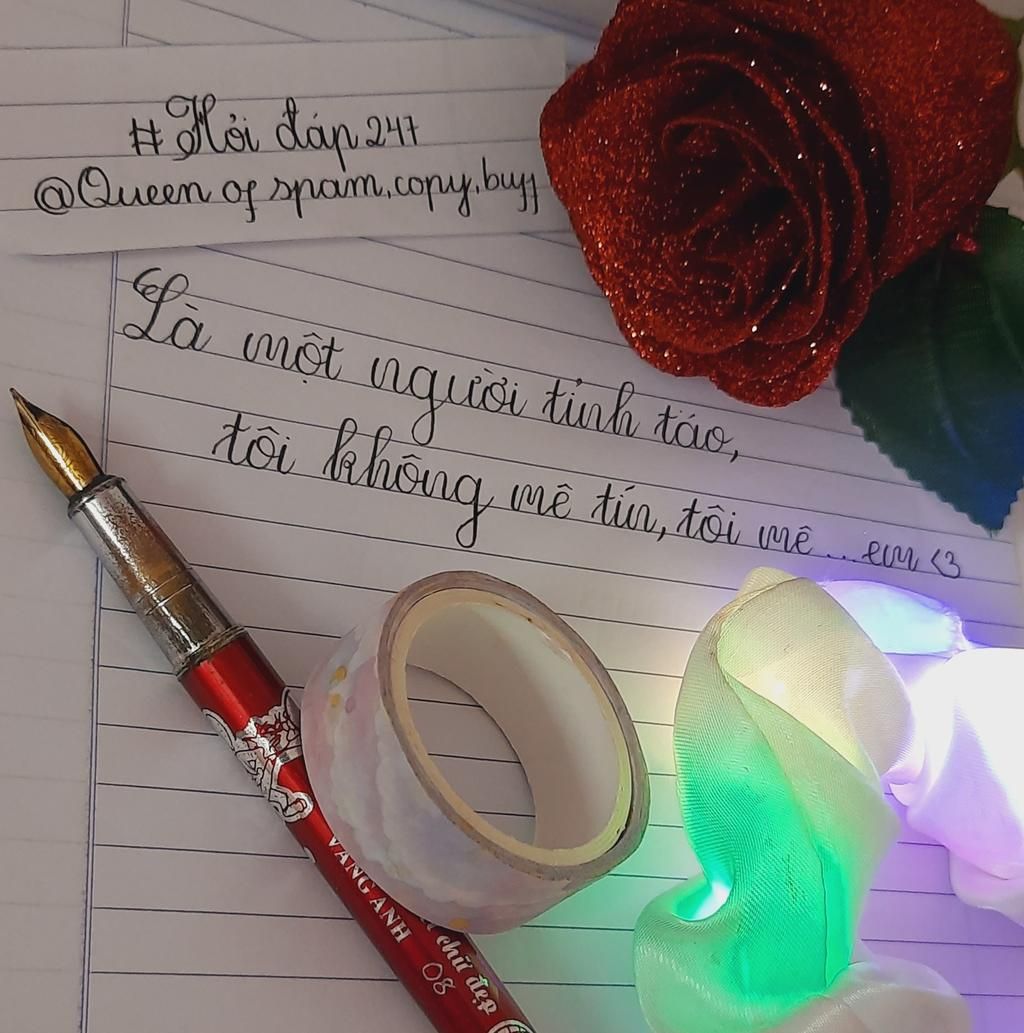 #Hỏi đáp 247
@Queen of spam,copy,buff
Là một người tỉnh táo,
tôi không mê tín, tôi mê ... em <3
VANG ANH
chữ đẹp
08